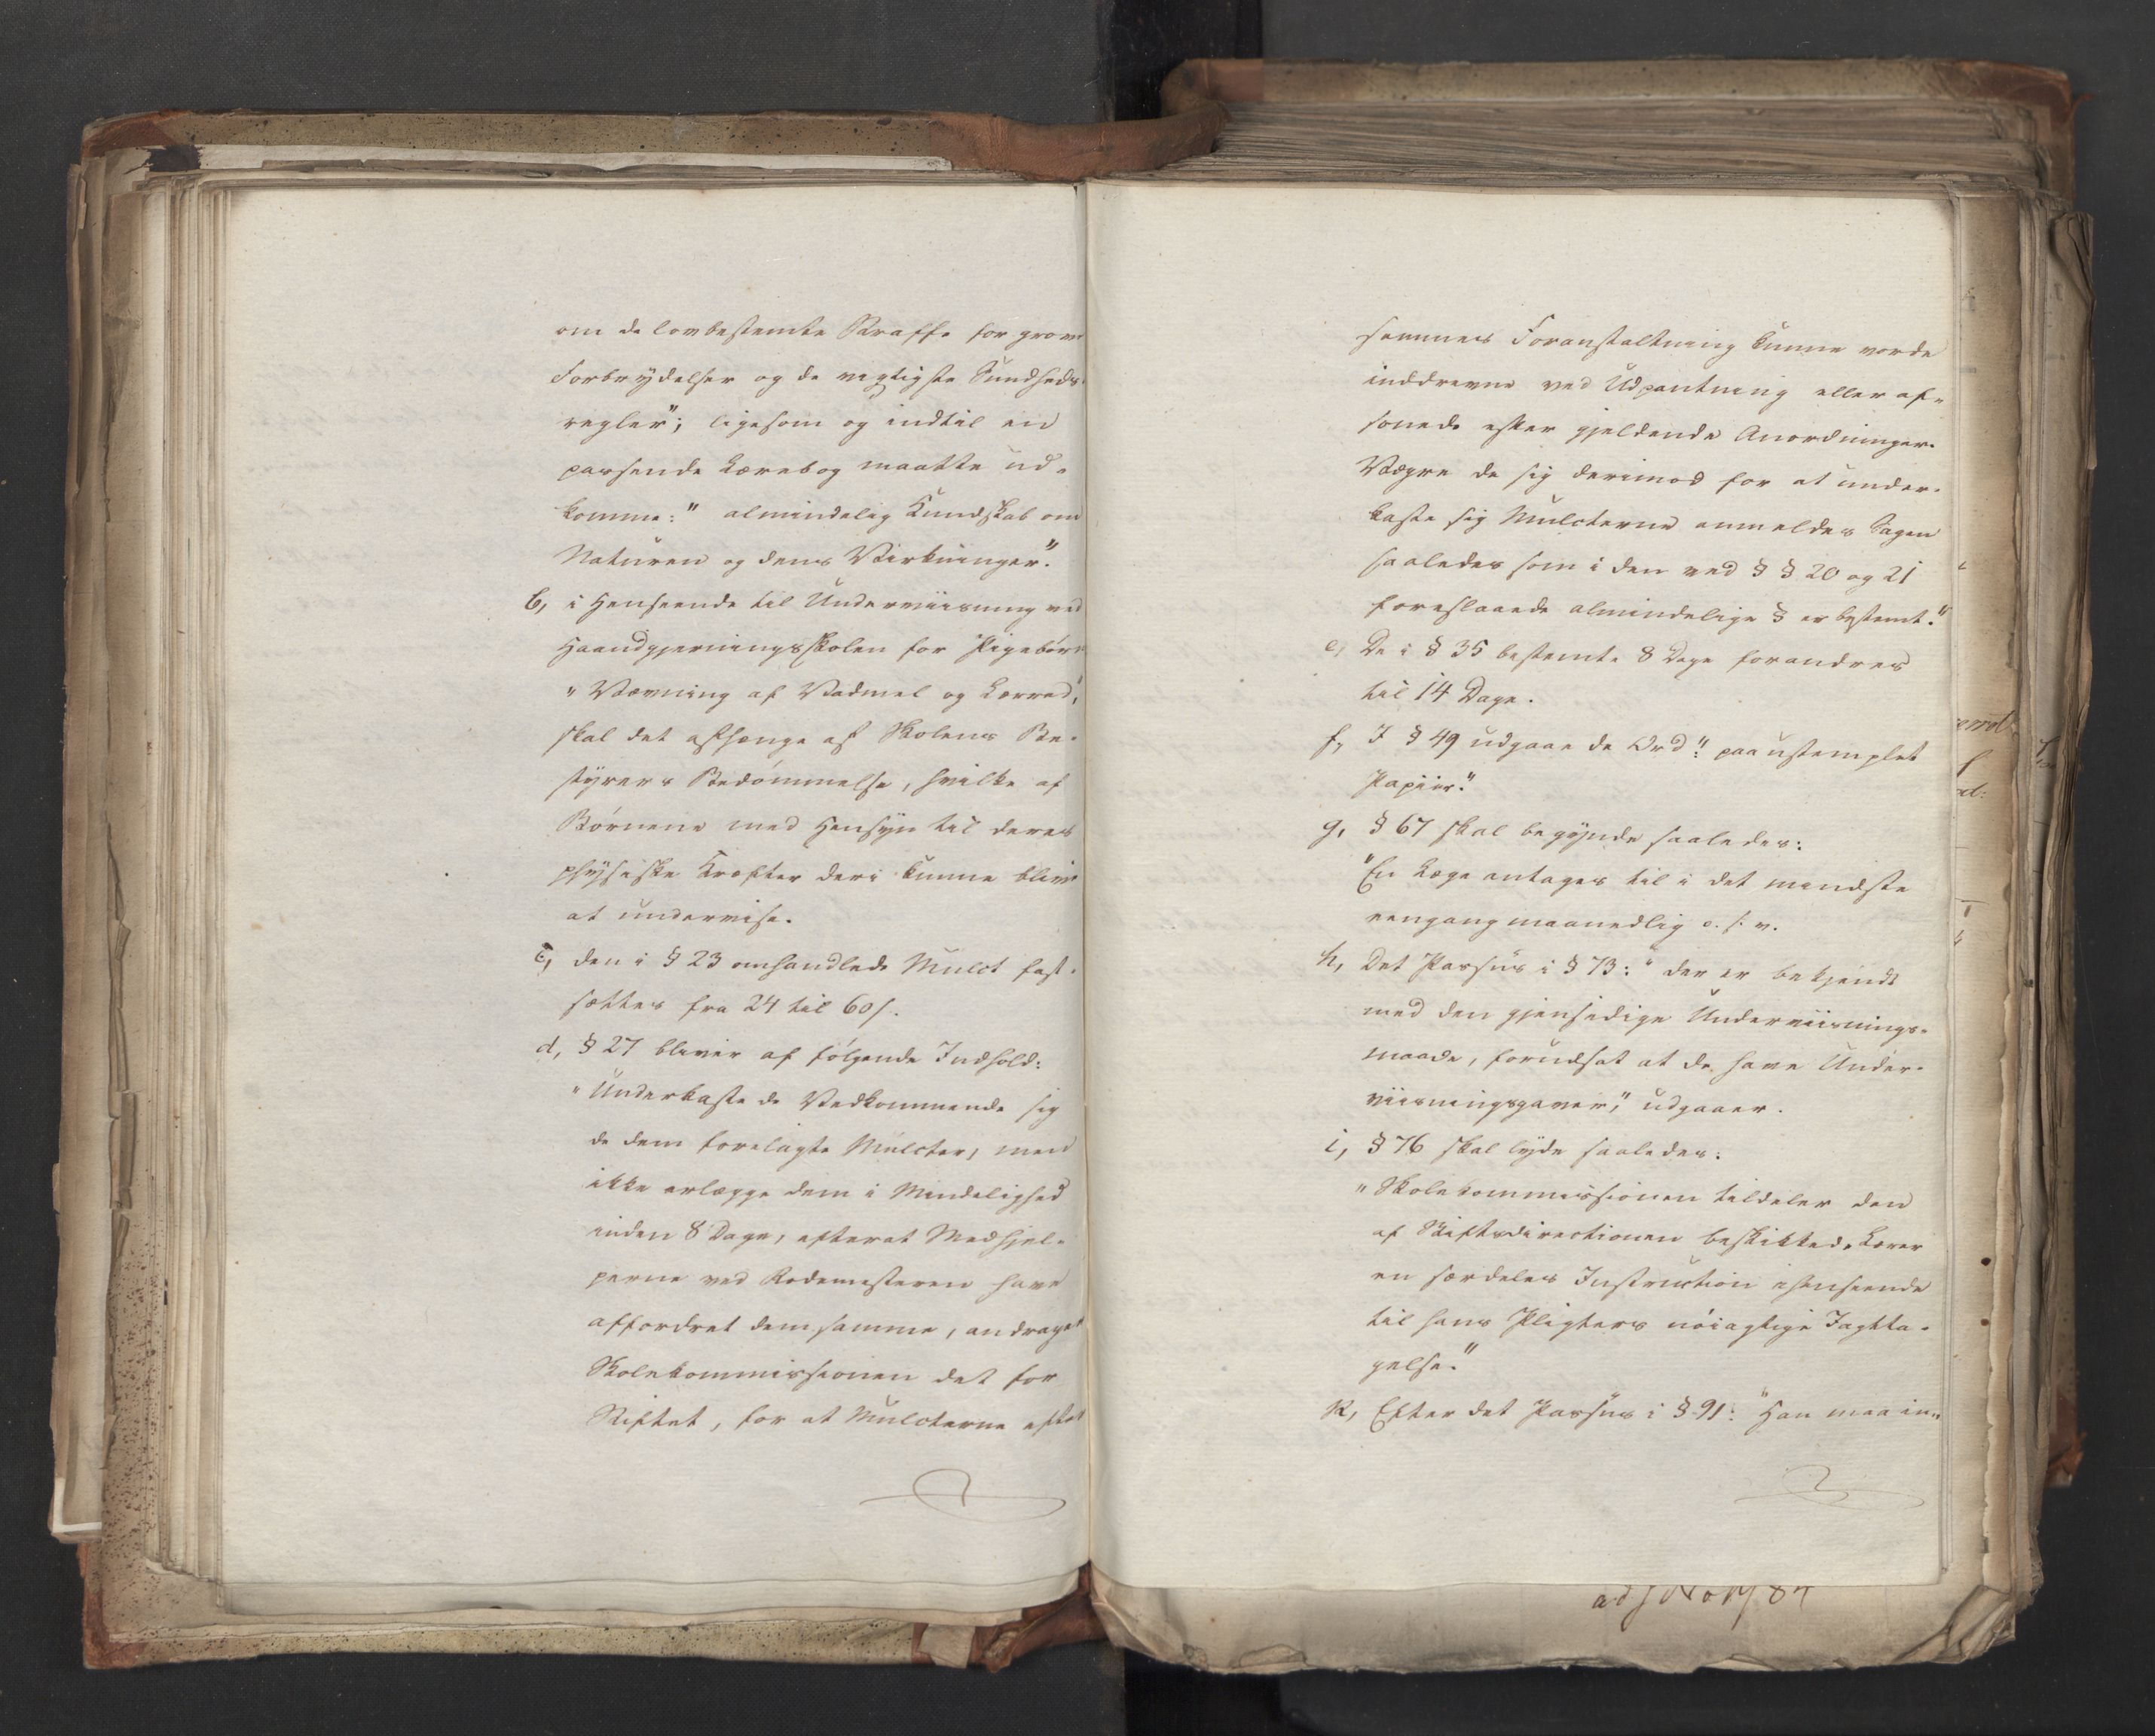 om de lovbestemte Straffe for grove
Forbrydelser og de vigtigste Sundheds-
regler"; ligesom og indtil en
passende Lærebog maatte ud-
komme: "almindelig Kundskab om
Naturen og dens Virkninger".
b, i Henseende til Underviisning ved
Haandgjerningsskolen for Pigebörn
"Vævning af Vadmel og Lærred",
skal det afhænge af Skolens Be-
styrers Bedömmelse, hvilke af
Börnene med Hensyn til deres
physiske Kræfter deri kunne blive
at undervise.
c, den i § 23 omhandlede Mulct fast-
sættes fra 24 til 60 s.
d, § 27 bliver af fölgende Indhold:
"Underkaste de Vedkommende sig
de dem forelagte Mulcter, men
ikke erlægge dem i Mindelighed
inden 8 Dage, efterat Medhjel-
perne ved Rodemesteren have
affordret dem samme, andrager
Skolekommissionen det for
Stiftet, for at Mulcterne efter
sammes Foranstaltning kunne vorde
inddrevne ved Udpantning eller af-
sonede efter gjeldende Anordninger.
Vægre de sig derimod for at under-
kaste sig Mulcterne anmeldes Sagen
saaledes som i den ved § § 20 og 21
foreslaaede almindelige § er bestemt."
e, De i § 35 bestemte 8 Dage forandres
til 14 Dage.
f, I § 49 udgaae de Ord: "paa ustemplet
Papiir."
g, § 67 skal begynde saaledes:
"En Læge antages til i det mindste
eengang maanedlig o. s. v.
h, Det Passus i § 73: "der er bekjendt
med den gjensidige Underviisnings-
maade, forudsat at de have Under-
viisningsgaver," udgaaer.
i, § 76 skal lyde saaledes:
"Skolekommissionen tildeler den
af Stiftsdirectionen beskikkede Lærer
en særdeles Instruction ihenseende
til hans Pligters nöiagtige Iagtta-
gelse."
k, Efter det Passus i § 91: "Han maa in-